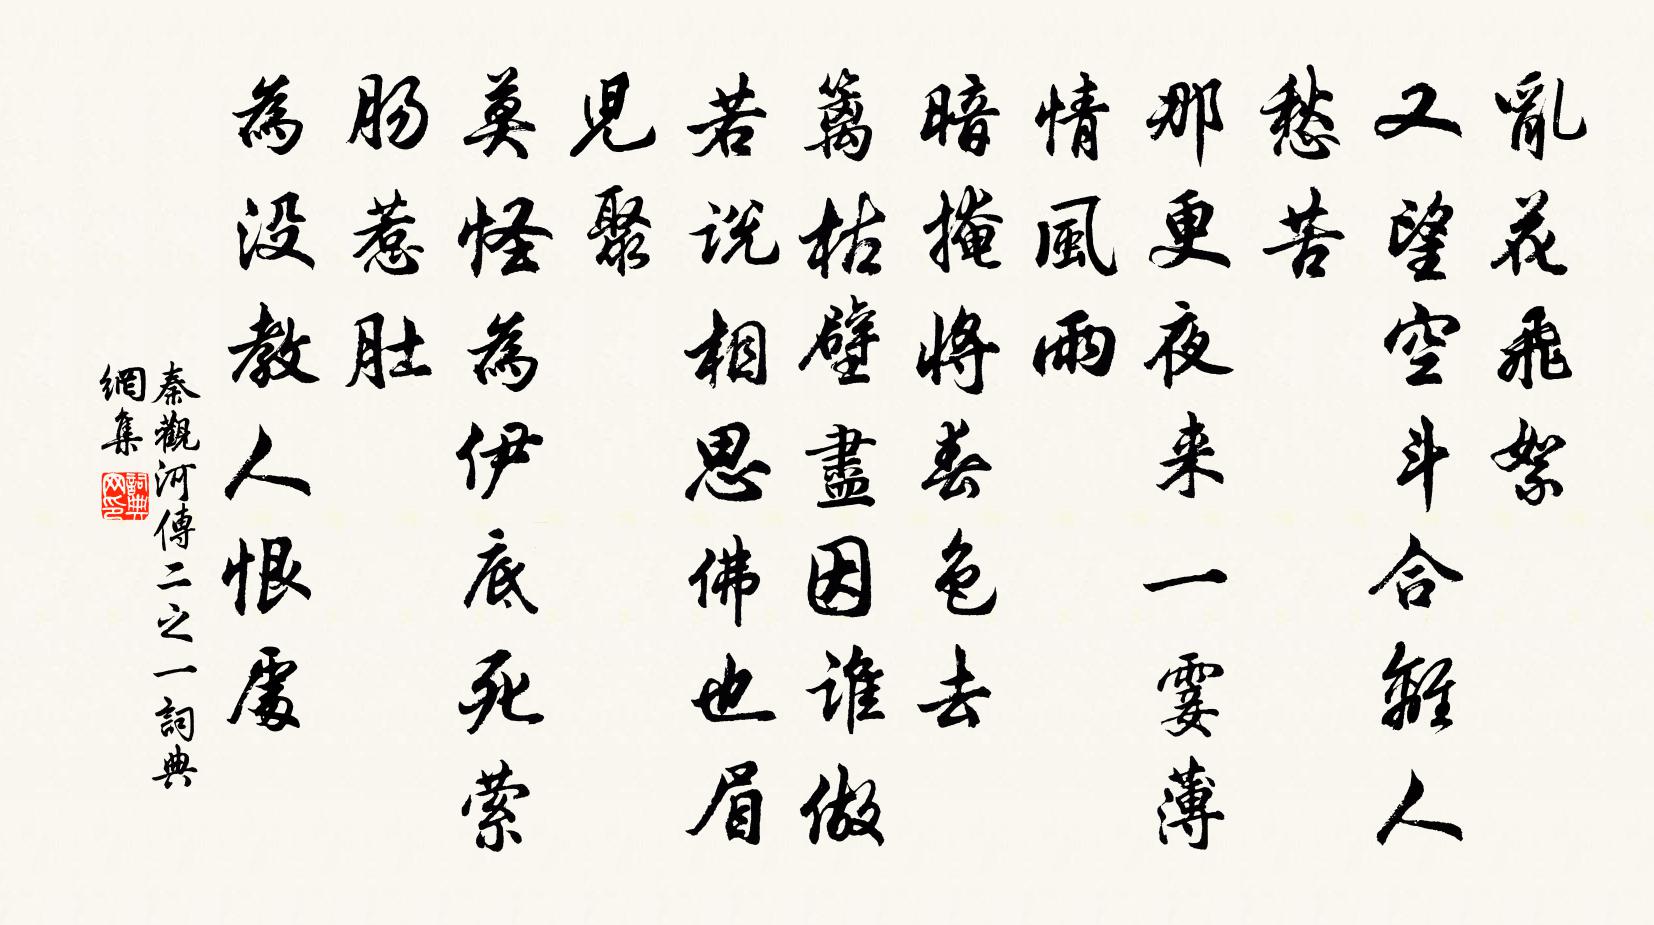 亂花飛絮
又望空斗合離人
愁苦
那更夜来一霎薄
情風雨
暗掩將春色去
籬枯壁盡因誰做
若说相思佛也眉
兒聚
莫怪為伊底死萦
肠惹肚
為没教人恨處
秦觀河傳二之一詞典
網集
詞典
网印